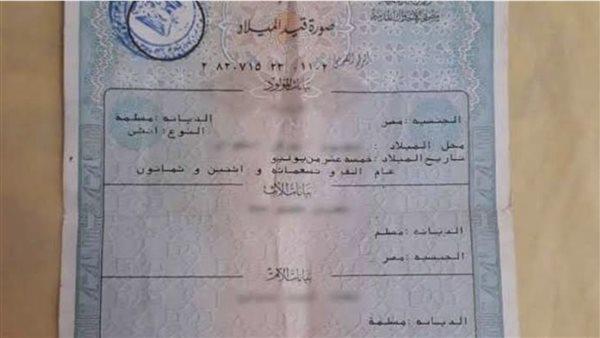 صورة قيد الميلاد
الرقم القومى ٢ ٨٢٠٧١٥ ٢٣
بيانات المولود
الجنسيه : مصر الديانه : مسلمة
النوع : انثى
محل الميلاد :
تاريخ الميلاد : خمسه عشر من يوليو
عام الف و تسعمائه و اثنين و ثمانون
بيانات الأب
الديانه : مسلم
الجنسيه : مصر
بيانات الأم
الديانه : مسلمة